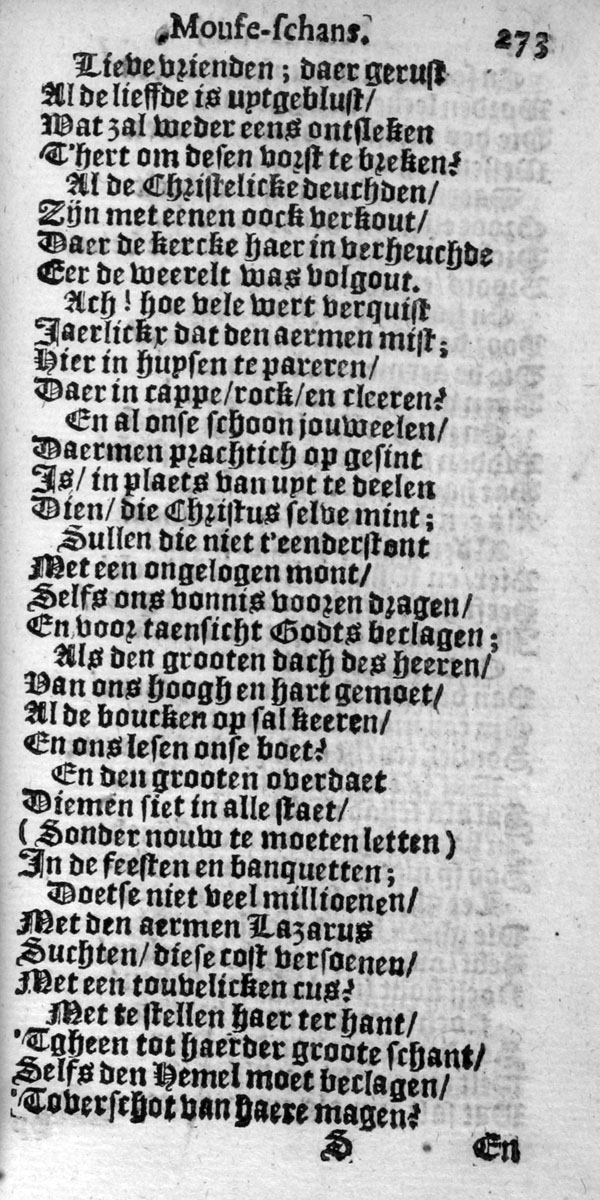 Mouse-schans. 273
Lieve vrienden; daer gerust
Al de lieffde is uytgeblust/
Wat zal weder eens ontsteken
T'hert om desen vorst te breken?
Al de Christelicke deuchden/
Zijn met eenen oock verkout/
Daer de kercke haer in verheuchde
Eer de weerelt was volgout.
Ach! hoe vele wert verquist
Jaerlickx dat den aermen mist;
Hier in huysen te pareren/
Daer in cappe/rock/en cleeren?
En al onse schoon jouweelen/
Daermen prachtich op gesint
Is/ in plaets van uyt te deelen
Dien/ die Christus selve mint;
Sullen die niet t'eenderstont
Met een ongelogen mont/
Selfs ons vonnis vooren dragen/
En voor taensicht Godts beclagen;
Als den grooten dach des heeren/
Van ons hoogh en hart gemoet/
Al de boucken op sal keeren/
En ons lesen onse boet?
En den grooten overdaet
Diemen siet in alle staet/
(Sonder nouw te moeten letten)
In de feesten en banquetten;
Doetse niet veel millioenen/
Met den aermen Lazarus
Suchten/ diese cost versoenen/
Met een touvelicken cus?
Met te stellen haer ter hant/
'Tgheen tot haerder groote schant/
Selfs den Hemel moet beclagen/
'Toverschot van haere magen?
S En